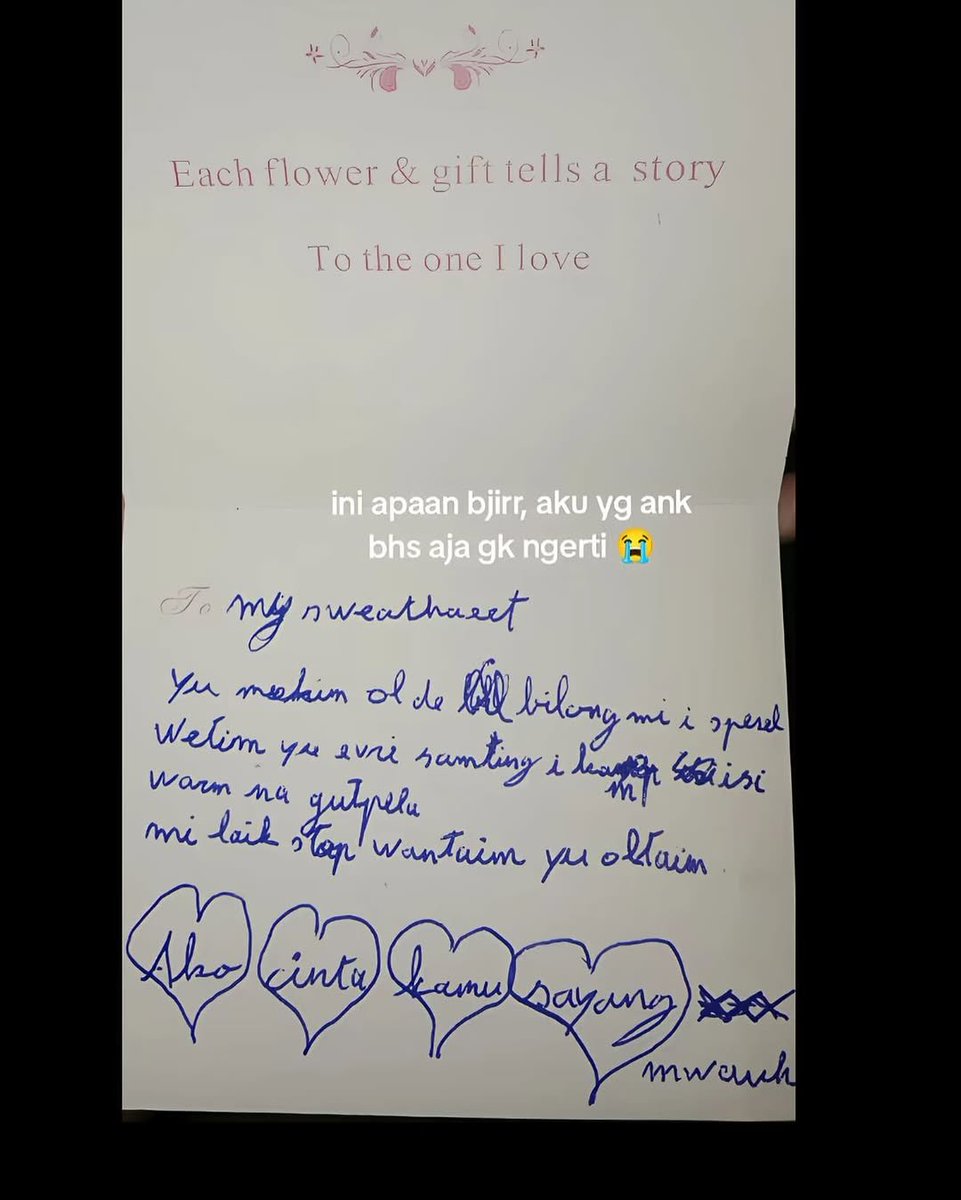 Each flower & gift tells a story
To the one I love
ini apaan bjirr, aku yg ank
bhs aja gk ngerti 😭
To my sweathaeet
Yu mekim ol de bilong mi i spesel
Wetim yu evri samting i kamap isi
warm na gutpela
mi laik stap wantaim yu oltaim
Ako cinta kamu sayang
mwauh